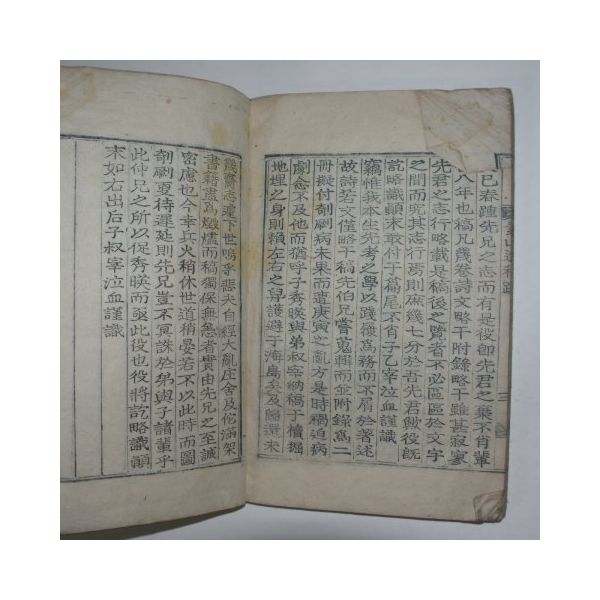 已春踵先兄之志而有是役卽先君之棄不肖輩
八年也稿凡幾卷詩文略干附錄略干雖甚寂寥
先君之志行略載是稿後之覽者不必區區於文字
之間而究其志行焉則庶幾七分於吾先君歟役旣
訖略識顚末敢付于稿尾不肖子乙宰泣血謹識
竊惟我本生先考之學以踐履爲務而不屑於著述
故詩若文僅略干稿先伯兄嘗蒐稡而並附錄爲二
冊擬付剞劂病未果而遭庚寅之亂方是時禍迫病
劇念不及他而猶呼子秀暎與弟叔宰納稿于櫝掘
地埋之身則賴左右之舁護避于海島矣及歸選未
幾齎志遽下世嗚乎悲夫自經大亂庄舍及佗滿架
書籍盡爲燬燼而稿獨保無恙者實由先兄之至誠
密慮也今幸兵火稍休世道稍晏若不以此時而圖
剞劂更待遲延則先兄豈不冥誅於弟與子諸輩乎
此仲兄之所以促秀暎而亟此役也役將訖略識顚
末如右出后子叔宰泣血謹識